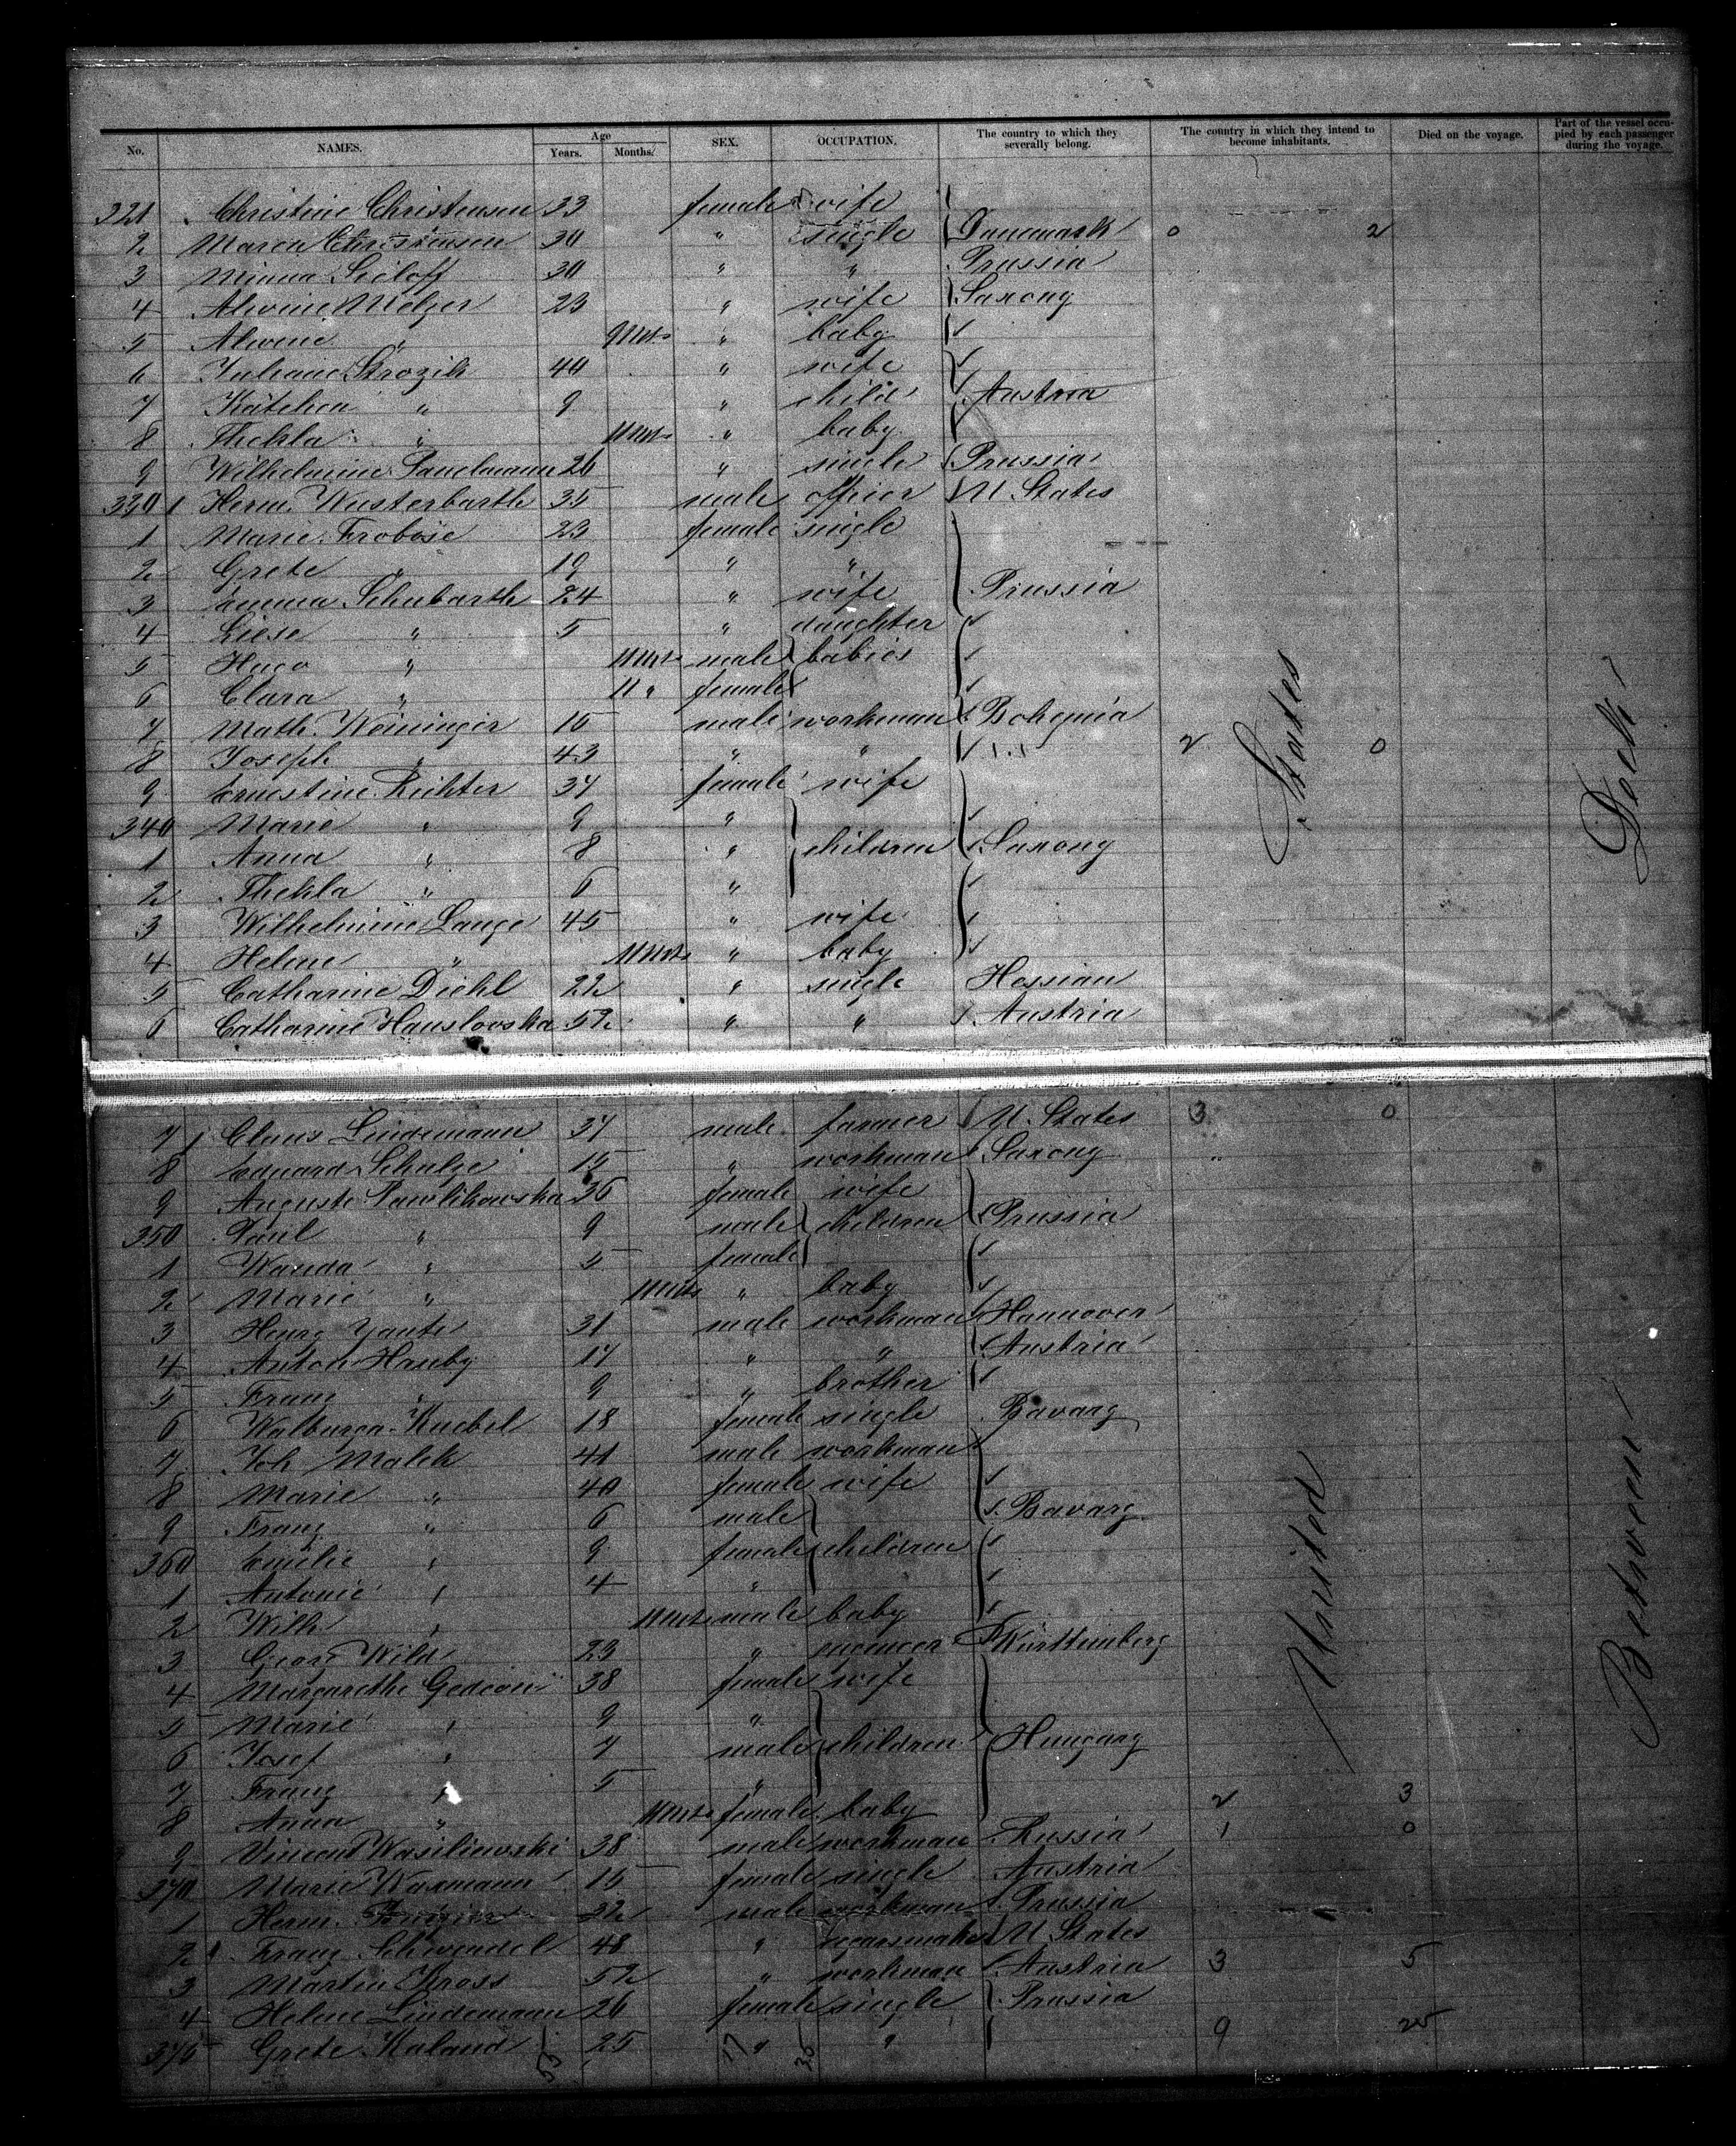 No. NAMES. Age Years. Months. SEX. OCCUPATION. The country to which they severally belong. The country in which they intend to become inhabitants. Died on the voyage. Part of the vessel occupied by each passenger during the voyage.
321 Christine Christensen 33 female wife
2 Maren Christensen 30 " single Danemark 0 2
3 Minna 30 " " Prussia
4 Alwine Melzer 23 " wife Saxony
5 Alwine " 9 Mts " baby
6 Juliane Strozik 40 " wife
7 " 9 " child Austria
8 Thekla " 11 Mts " baby
9 Wilhelmine 26 " single Prussia
330 Herm. Wusterbarth 35 male officer U States
1 Marie Froböse 23 female single
2 Grete " 19 " "
3 Emma Schubarth 24 " wife Prussia
4 Liese " 5 " daughter
5 Hugo " 11 Mts male babies
6 Clara " 11 " female
7 Math. Weininger 16 male workman Bohemia
8 Joseph " 43 " " 2 0
9 Ernestine Richter 34 female wife
340 Marie " 9 "
1 Anna " 8 " children Saxony
2 Thekla " 6 "
3 Wilhelmine Lange 45 " wife
4 Helene " 11 Mts " baby
5 Catharine Diehl 22 " single Hessian
6 Catharine Hauslovska 52 " " Austria
7 Claus Lindemann 37 male farmer U. States 3 0
8 Eduard Schulze 15 " workman Saxony "
9 Auguste Pawlikowska 36 female wife
350 Paul " 9 male children Prussia
1 Wanda " 5 female
2 Marie " 11 Mts " baby
3 Henry 31 male workman Hannover
4 Anton Hruby 17 " " Austria
5 Franz " 9 " brother
6 Walburga Kuebel 18 female single Bavary
7 Joh Malek 41 male workman
8 Marie " 40 female wife
9 Franz " 6 male Bavary
360 Emilie " 9 female children
1 Antonie " 4 "
2 Wilh " 11 Mts male baby
3 Georg Wild 23 " Württemberg
4 Margarethe 38 female wife
5 Marie " 9 "
6 Josef " 7 male children Hungary
7 Franz " 5 "
8 Anna " 11 Mts female baby 2 3
9 Vincent Wasiliewski 38 male workman Russia 1 0
370 Marie Waxmann 15 female single Austria
1 Herm. 32 male workman Prussia
2 Franz Schwendel 48 " U States
3 Martin Kross 52 " workman Austria 3 5
4 Helene Lindemann 26 female single Prussia
375 Grete Kaland 25 " " 9 25
United States
Between Deck